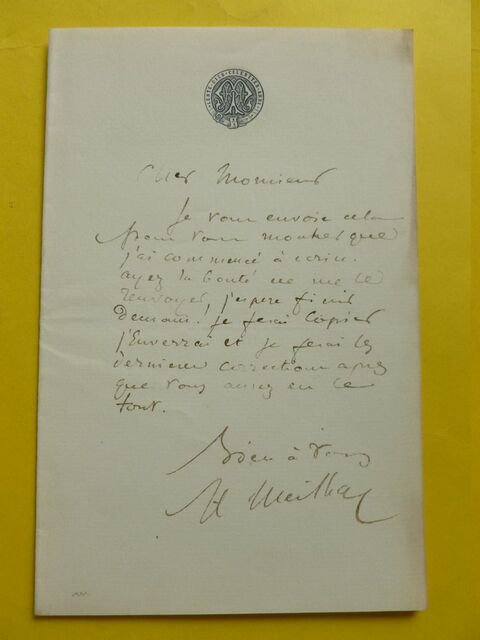 Cher Monsieur
Je vous envoie cela
pour vous montrer que
j'ai commencé à écrire.
ayez la bonté de me le
renvoyer, j'espère finir
demain. je ferai copier
j'enverrai et je ferai les
dernières corrections après
que vous aurez eu le
tout.
Bien à vous
H Meilhac